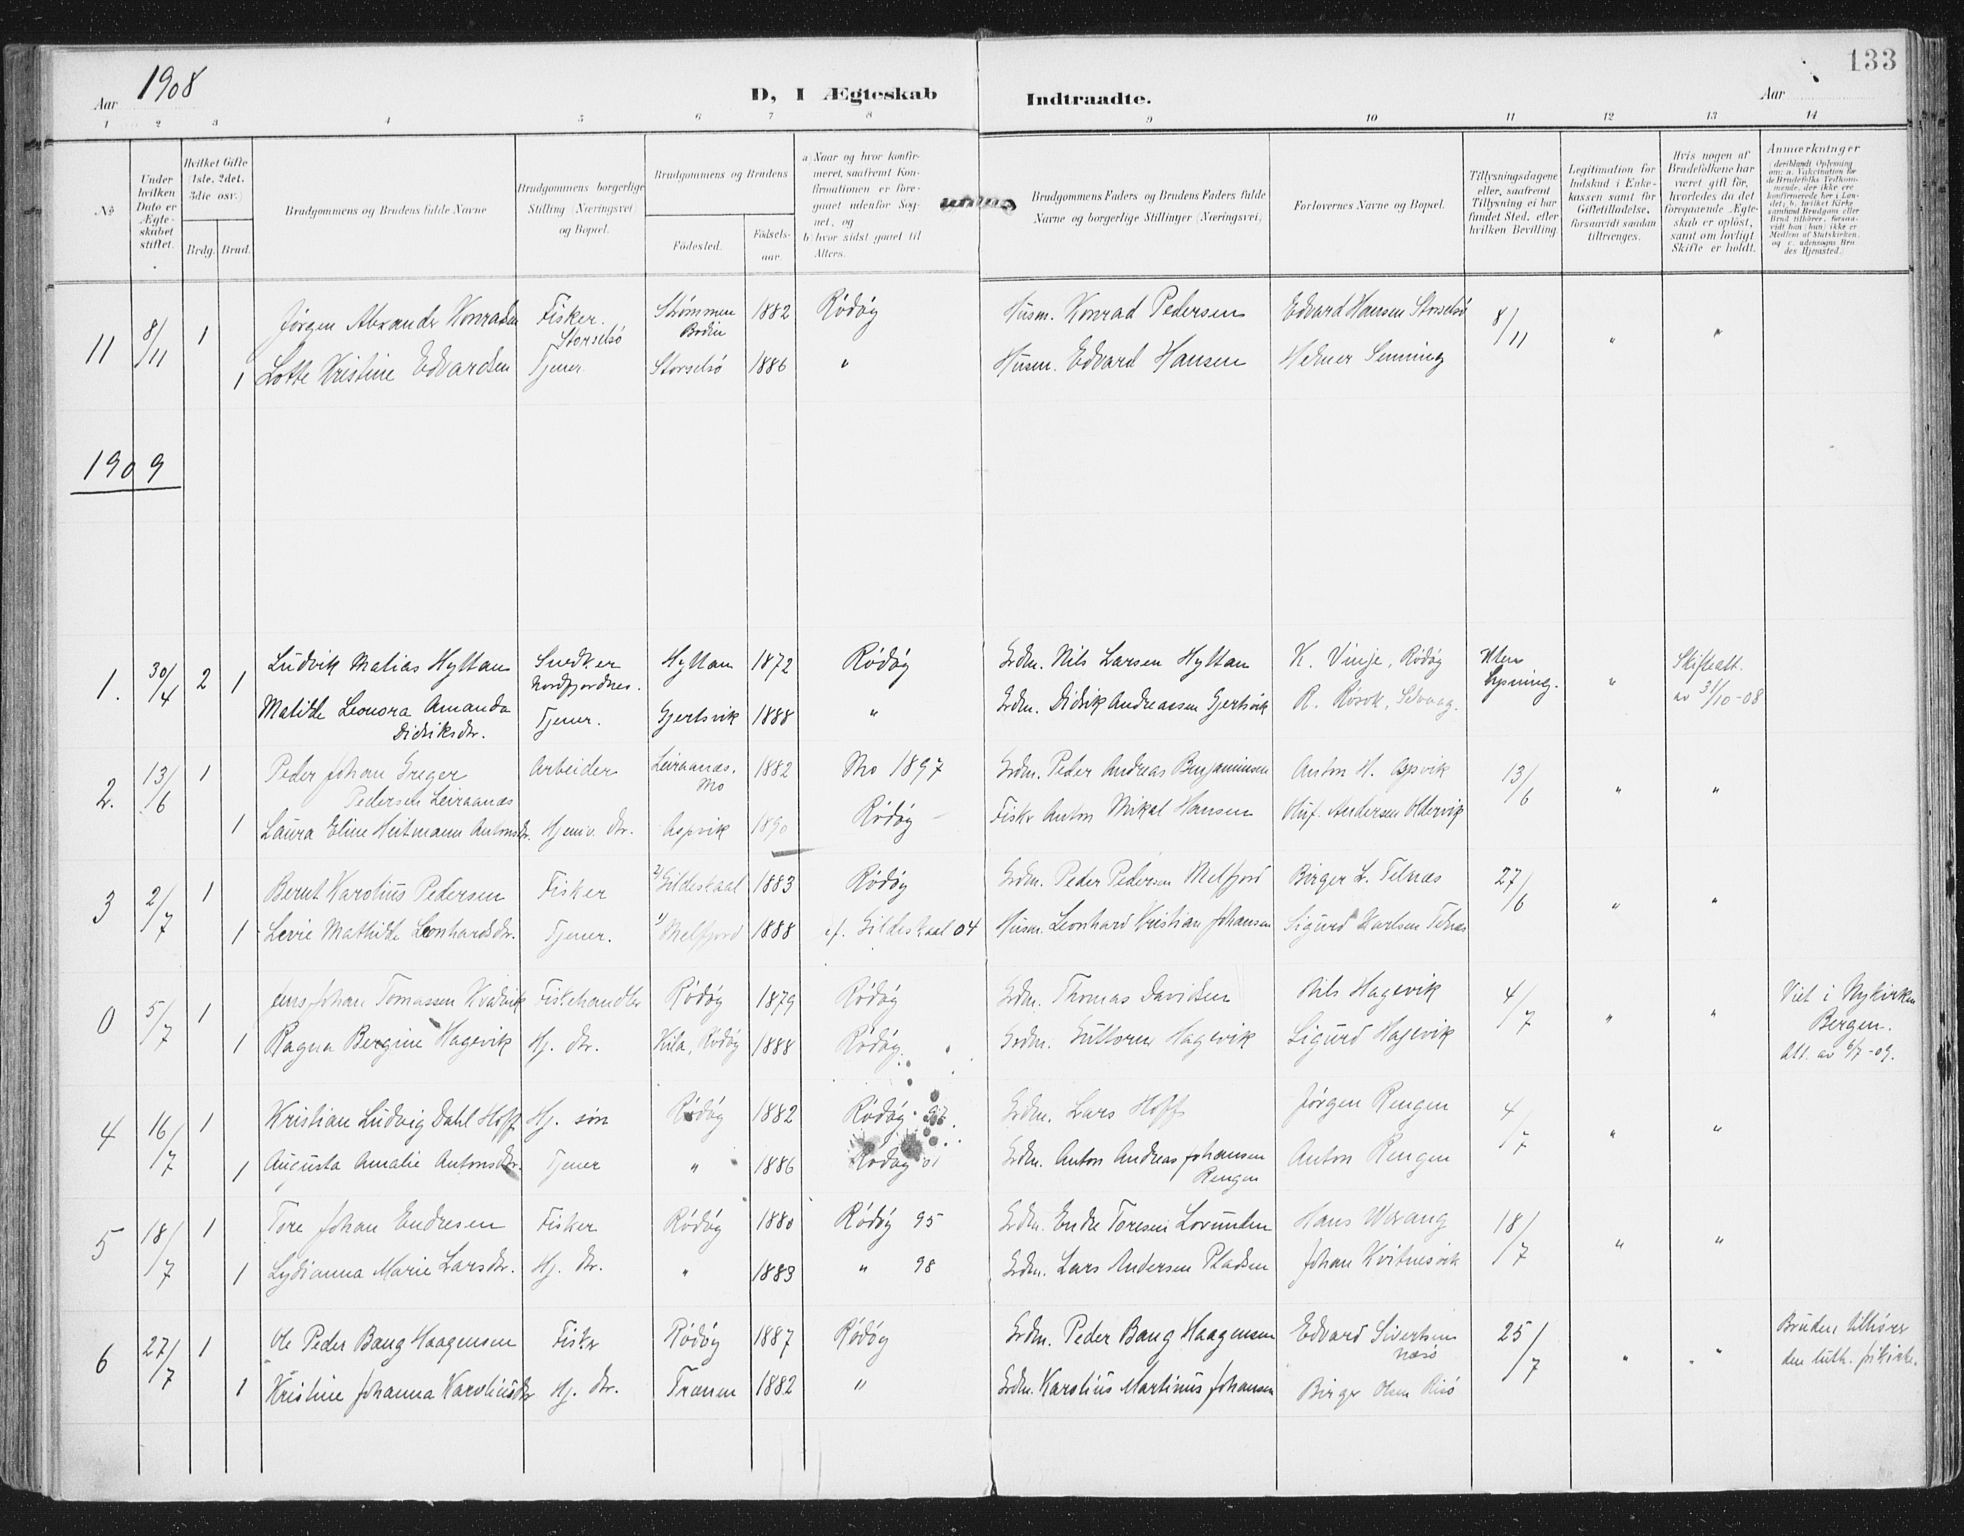 133
Aar 1908
D, I Ægteskab Indtraadte.
Aar
1 2 3 4 5 6 7 8 9 10 11 12 13 14
No
Under hvilken Dato er Ægteskabet stiftet.
Hvilket Gifte (1ste, 2det, 3die osv.)
Brdg. Brud.
Brudgommens og Brudens fulde Navne
Brudgommens borgerlige Stilling (Næringsvei) og Bopæl.
Brudgommens og Brudens
Fødested. Fødsels-aar.
a) Naar og hvor konfir-
meret, saafremt Kon-
firmationen er fore-
gaaet udenfor Sog-
net, og
b) hvor sidst gaaet til
Alters.
Brudgommens Faders og Brudens Faders fulde
Navne og borgerlige Stillinger (Næringsvei)
Forlovernes Navne og Bopæl.
Tillysningsdagene
eller, saafremt
Tillysning ei har
fundet Sted, efter
hvilken Bevilling
Legitimation for
Indskud i Enke-
kassen samt for
Giftetilladelse,
forsaavidt saadan
tiltrænges.
Hvis nogen af
Brudefolkene har
været gift før,
hvorledes da det
foregaaende Ægte-
skab er opløst,
samt om lovligt
Skifte er holdt.
Anmerkninger
11 8/11 1 Jørgen Konradsen Fisker. Storselsø Strømmen Bodin 1882 Rödöy Husm. Konrad Pedersen Edvard Hansen Storselsø 8/11 " "
1 Lotte Kristine Edvardsen Tjener Storselsø 1886 " Husm. Edvard Hansen Helmer Senning
1909
1. 30/4 2 Ludvik Matias Hyttan Snedker Nordfjordnes. Hyttan 1872 Rödöy Grdm. Nils Larsen Hyttan K. Vinje, Rödöy Uten lysning. " Skifteatt. av 31/10-08
1 Matilde Leonora Amanda Didriksdtr. Tjener. Gjertsvik 1888 " Grdm. Didrik Andreassen Gjertsvik R. Røsok, Selvaag.
2. 13/6 1 Peder Johan Greger Pedersen Leiraanæs Arbeider Leiraanæs. Mo 1882 Mo 1897 Grdm. Peder Andreas Benjaminsen Anton H. Aspvik 13/6 " "
1 Laura Eline Heitmann Antonsdtr. Hjemv. dtr. Aspvik 1890 Rödöy Fisker Anton Mikal Hansen Oluf Andersen Oldervik
3 2/7 1 Bernt Karolius Pedersen Fisker 2/ Gildeskaal 1883 Rödöy Grdm. Peder Pedersen Melfjord Birger L. Telnæs 27/6 " "
1 Levie Mathilde Leonhardsdtr. Tjener. 1/ Melfjord 1888 Gildeskaal 04 Husm. Leonhard Kristian Johansen Sigurd Karlsen Telnæs
0 5/7 1 Jens Johan Tomassen Fiskehandler Rödöy 1879 Rödöy Grdm. Thomas Davidsen Nils Hagevik 4/7 " " Viet i Nykirken Bergen. Att. av 6/7-09.
1 Ragna Bergine Hagevik Hj. dtr. Kila, Rödöy 1888 Rödöy. Grdm. Guttorm Hagevik Sigurd Hagevik
4 16/7 1 Kristian Ludvig Dahl Hoff Hj. søn Rödöy 1882 Rödöy 97. Grdm. Lars Hoff Jørgen Rengen 4/7 " "
1 Augusta Amalie Antonsdtr. Tjener " 1886 Rödöy 01 Grdm. Anton Andreas Johansen Rengen Anton Rengen
5 18/7 1 Tore Johan Endresen Fisker Rödöy 1880 Rödöy 95 Grdm. Endre Toresen Lovunden Hans Hvang 18/7 " "
1 Lydianna Marie Larsdtr. Hj. dtr. " 1883 " 98 Grdm. Lars Andersen Pladsen Johan Kvitnesvik
6 27/7 1 Ole Peder Bang Haagensen Fisker Rödöy 1887 Rödöy Grdm. Peder Bang Haagensen Edvard Sivertsen Næsø 25/7 " " Bruden tilhører den luth. frikirke.
1 Kristine Johanna Karoliusdtr Hj. dtr. Trænen 1882 " Grdm. Karolius Martinus Johansen Birger Olsen Risø